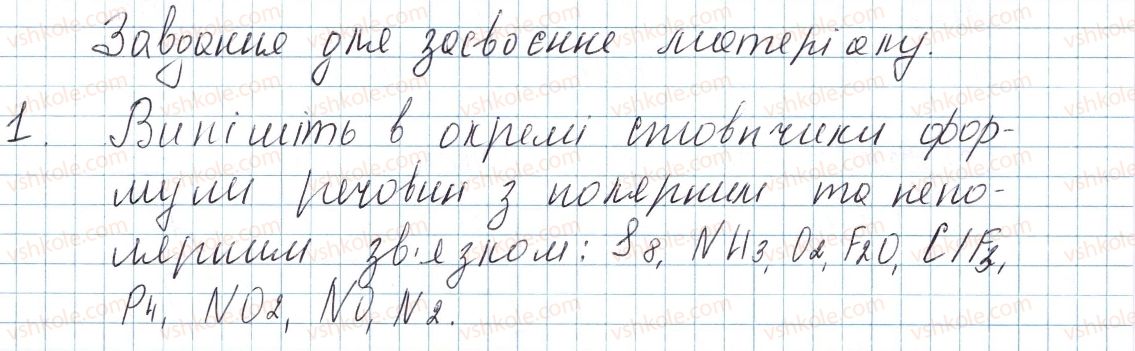 Завдання для засвоєння матеріалу.
1. Випішіть в окремі стовпчики фор-
мули речовин з полярним та непо-
лярним зв'язком: S8, NH3, O2, F2O, ClF3,
P4, NO2, NO, N2.